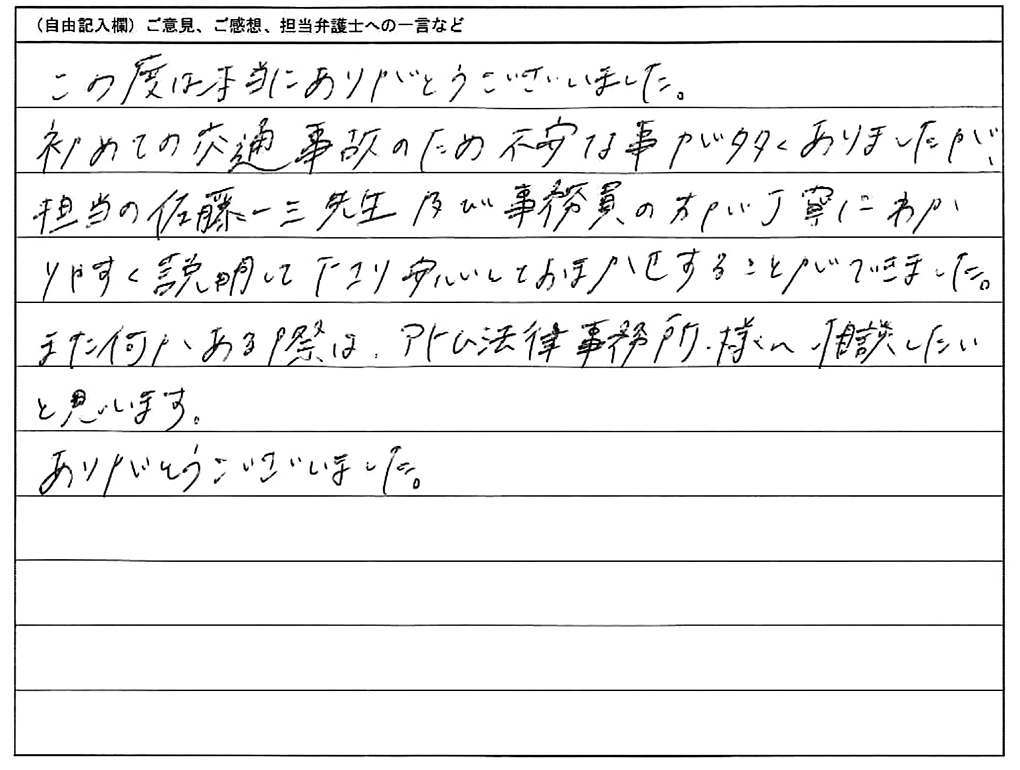 （自由記入欄）ご意見、ご感想、担当弁護士への一言など
この度は本当にありがとうございました。
初めての交通事故のため不安な事が多くありましたが、
担当の佐藤一三先生及び事務員の方が丁寧にわか
りやすく説明して下さり安心しておまかせすることができました。
また何かある際は、アトム法律事務所様へ相談したい
と思います。
ありがとうございました。